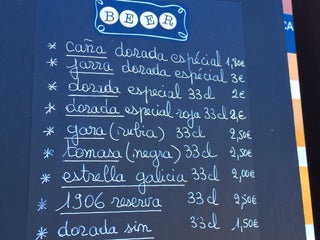 BEER
* caña dorada espécial 1,80€
* jarra dorada espécial 3€
* dorada especial 33cl 2€
* dorada especial roja 33cl 2,€
* gara (rubia) 33cl 2,50€
* tomasa (negra) 33cl 2,50€
* estrella galicia 33cl 2,00€
* 1906 reserva 33cl 2,50€
* dorada sin 33cl 1,50€